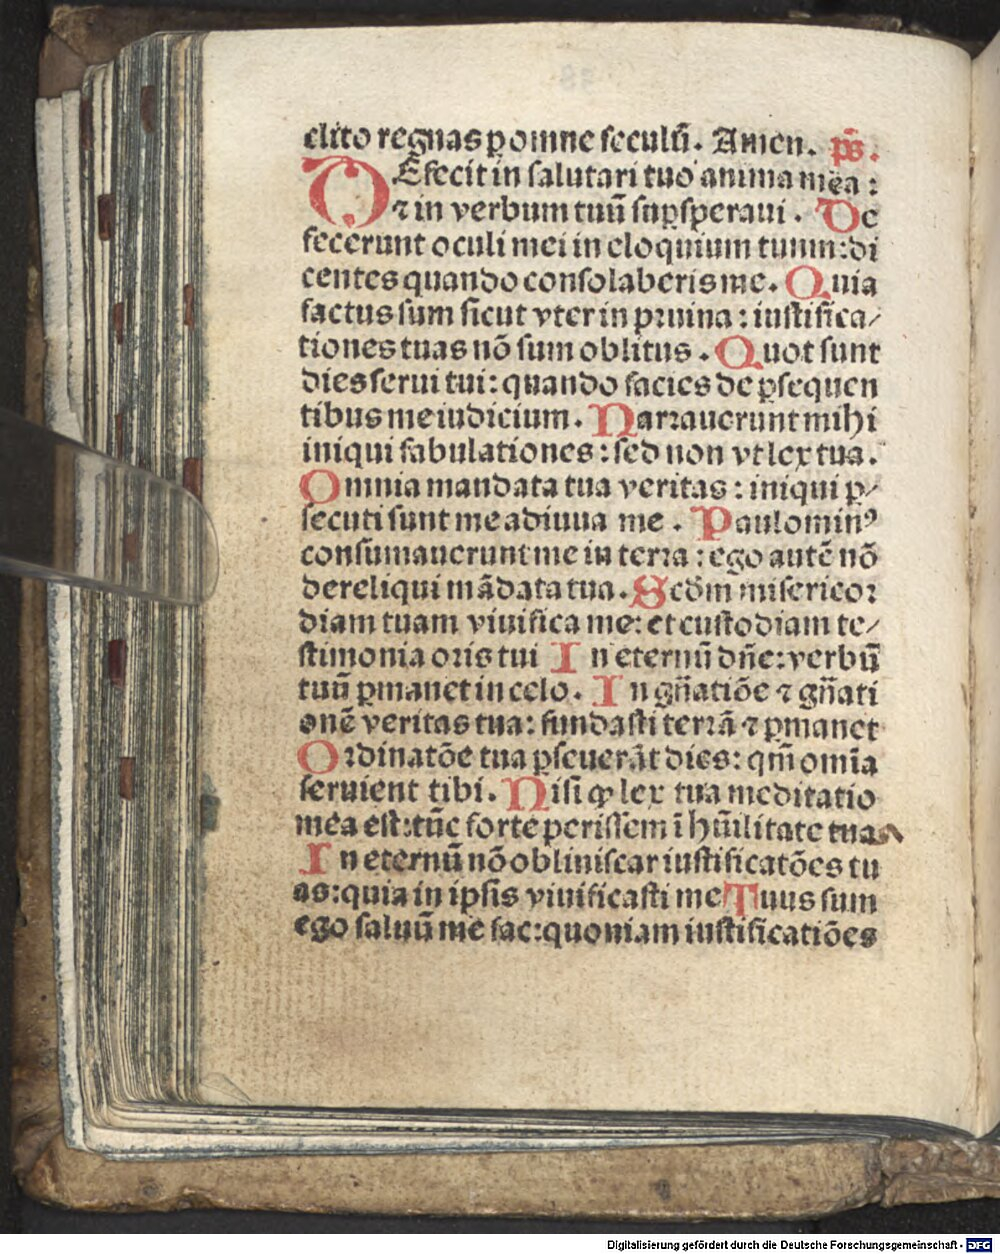 clito regnas ꝑ omne seculū. Amen. ps̄.
DEfecit in salutari tuo anima mea:
⁊ in verbum tuū suꝑsperaui. De
fecerunt oculi mei in eloquium tuum: di
centes quando consolaberis me. Quia
factus sum sicut vter in pruina: iustifica/
tiones tuas nō sum oblitus. Quot sunt
dies serui tui: quando facies de ꝑsequen
tibus me iudicium. Narrauerunt mihi
iniqui fabulationes: sed non vt lex tua.
Omnia mandata tua veritas: iniqui ꝑ/
secuti sunt me adiuua me. Paulominꝰ
consumauerunt me in terra: ego autē nō
dereliqui mādata tua. Scdm̄ misericor
diam tuam viuifica me: et custodiam te/
stimonia oris tui In eternū dn̄e: verbū
tuū ꝑmanet in celo. In gn̄atiōe ⁊ gn̄ati
onē veritas tua: fundasti terrā ⁊ ꝑmanet
Ordinatōe tua ꝑseuerāt dies: qm̄ omīa
seruient tibi. Nisi ꝙ lex tua meditatio
mea est: tūc forte perissem ī hūilitate tua
In eternū nō obliuiscar iustificatōes tu
as: quia in ipsis viuificasti me Tuus sum
ego saluū me fac: quoniam iustificatiōes
Digitalisierung gefördert durch die Deutsche Forschungsgemeinschaft - DFG